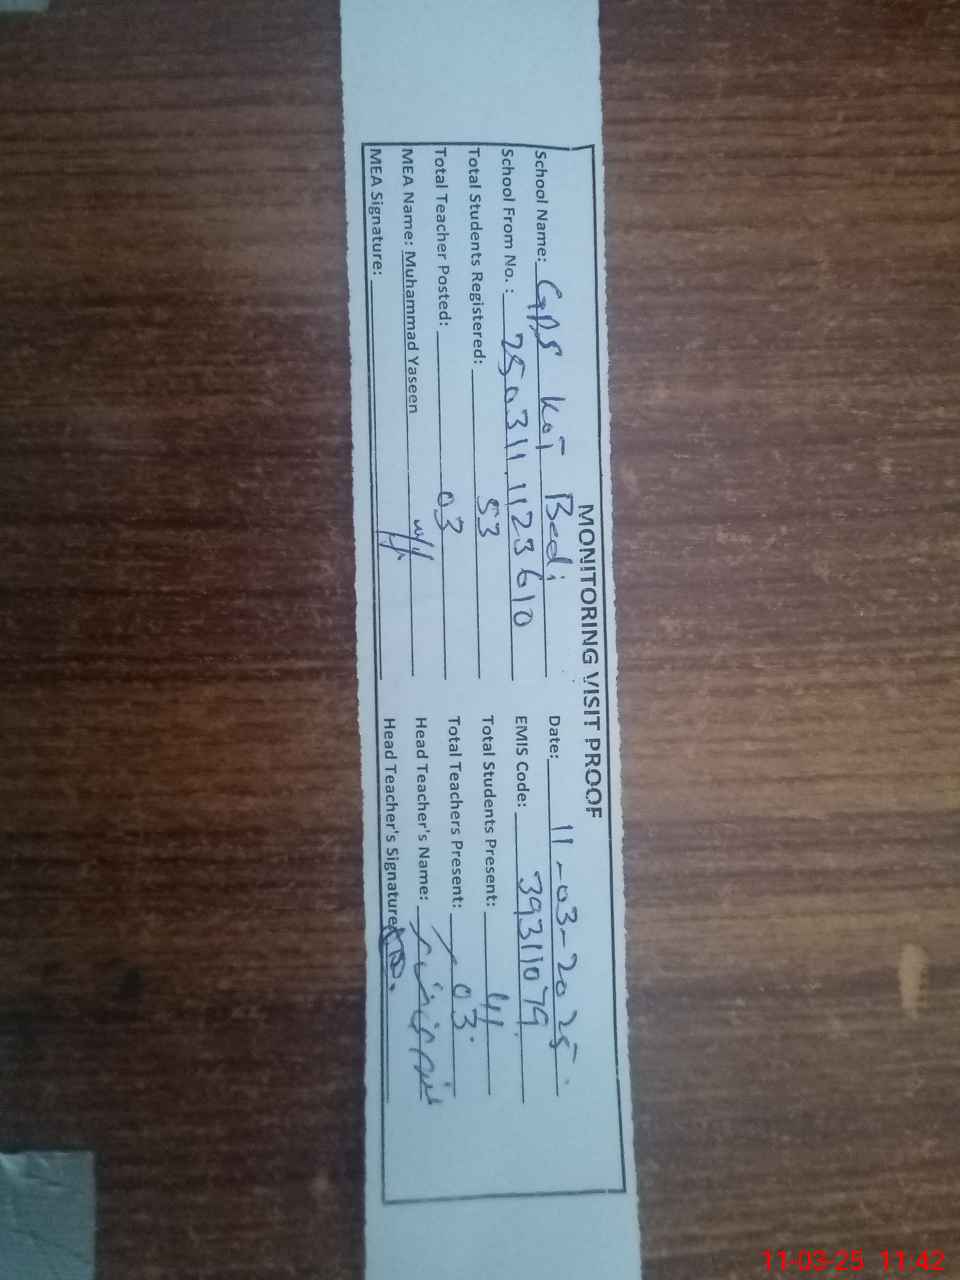 MONITORING VISIT PROOF
School Name: GPS Kot Bedi Date: 11-03-2025
School From No.: 250311 1123610 EMIS Code: 39311079
Total Students Registered: 53 Total Students Present: 41
Total Teacher Posted: 03 Total Teachers Present: 03
MEA Name: Muhammad Yaseen Head Teacher's Name:
MEA Signature: Head Teacher's Signature
11-03-25 11:42